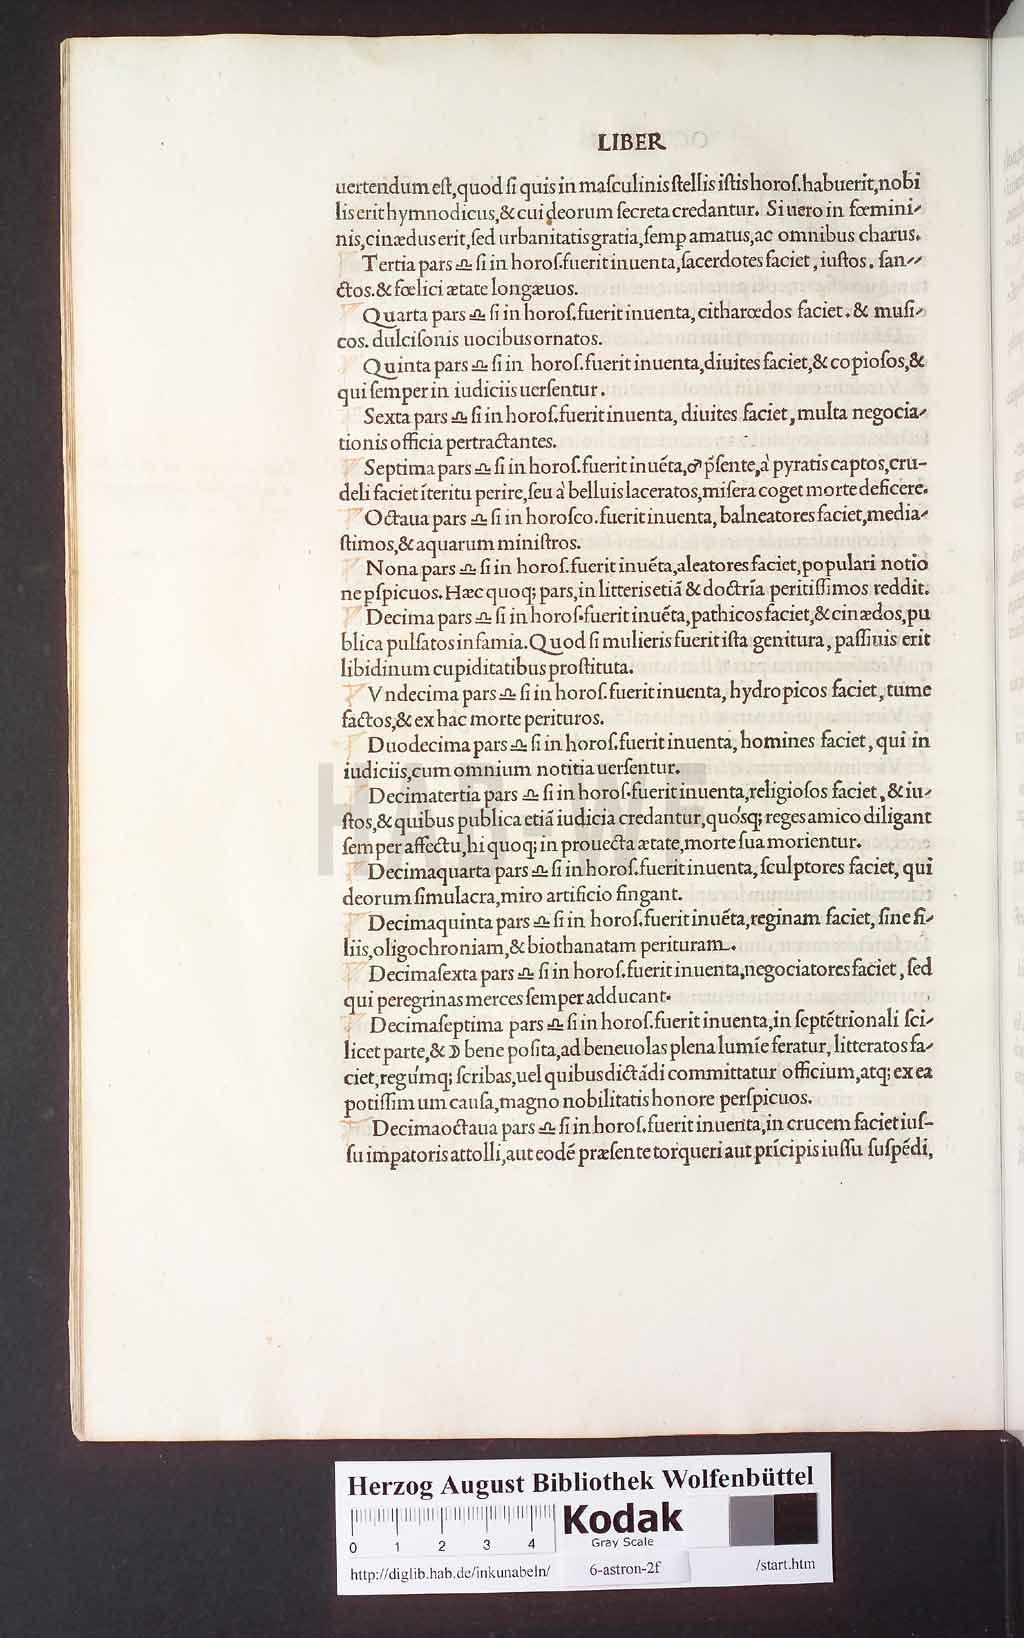 LIBER
uertendum eſt,quod ſi quis in maſculinis ſtellis iſtis horoſ.habuerit,nobi
lis erit hymnodicus,& cui deorum ſecreta credantur. Si uero in fœmini-
nis,cinædus erit,ſed urbanitatis gratia,ſemꝑ amatus,ac omnibus charus.
Tertia pars ♎ ſi in horoſ.fuerit inuenta,ſacerdotes faciet,iuſtos. ſan-
ctos.& fœlici ætate longæuos.
Quarta pars ♎ ſi in horoſ.fuerit inuenta, citharœdos faciet.& muſi-
cos. dulciſonis uocibus ornatos.
Quinta pars ♎ ſi in horoſ.fuerit inuenta,diuites faciet,& copioſos,&
qui ſemper in iudiciis uerſentur.
Sexta pars ♎ ſi in horoſ.fuerit inuenta, diuites faciet, multa negocia-
tionis officia pertractantes.
Septima pars ♎ ſi in horoſ.fuerit inuẽta,♂ p̃ſente,à pyratis captos,cru-
deli faciet ĩteritu perire,ſeu à belluis laceratos,miſera coget morte deficere.
Octaua pars ♎ ſi in horoſco.fuerit inuenta, balneatores faciet,media-
ſtimos,& aquarum miniſtros.
Nona pars ♎ ſi in horoſ.fuerit inuẽta,aleatores faciet,populari notio
ne ꝑſpicuos. Hæc quoq; pars,in litteris etiã & doctrĩa peritiſſimos reddit.
Decima pars ♎ ſi in horoſ.fuerit inuẽta,pathicos faciet,& cinædos,pu
blica pulſatos infamia.Quod ſi mulieris fuerit iſta genitura, paſſiuis erit
libidinum cupiditatibus proſtituta.
Vndecima pars ♎ ſi in horoſ.fuerit inuenta, hydropicos faciet, tume
factos,& ex hac morte perituros.
Duodecima pars ♎ ſi in horoſ.fuerit inuenta, homines faciet, qui in
iudiciis,cum omnium notitia uerſentur.
Decimatertia pars ♎ ſi in horoſ.fuerit inuenta,religioſos faciet,& iu-
ſtos,& quibus publica etiã iudicia credantur,quóſq; reges amico diligant
ſemper affectu,hi quoq; in prouecta ætate,morte ſua morientur.
Decimaquarta pars ♎ ſi in horoſ.fuerit inuenta, ſculptores faciet, qui
deorum ſimulacra,miro artificio fingant.
Decimaquinta pars ♎ ſi in horoſ.fuerit inuẽta,reginam faciet, ſine fi-
liis,oligochroniam,& biothanatam perituram.
Decimaſexta pars ♎ ſi in horoſ.fuerit inuenta,negociatores faciet, ſed
qui peregrinas merces ſemper adducant.
Decimaſeptima pars ♎ ſi in horoſ.fuerit inuenta,in ſeptẽtrionali ſci-
licet parte,& ☽ bene poſita,ad beneuolas plena lumĩe feratur, litteratos fa-
ciet,regúmq; ſcribas,uel quibus dictãdi committatur officium,atq; ex ea
potiſſimum cauſa,magno nobilitatis honore perſpicuos.
Decimaoctaua pars ♎ ſi in horoſ.fuerit inuenta,in crucem faciet iuſ-
ſu imꝑatoris attolli,aut eodẽ præſente torqueri aut prĩcipis iuſſu ſuſpẽdi,
HAB-WF
Herzog August Bibliothek Wolfenbüttel
0 1 2 3 4
Kodak
Gray Scale
http://diglib.hab.de/inkunabeln/ 6-astron-2f /start.htm